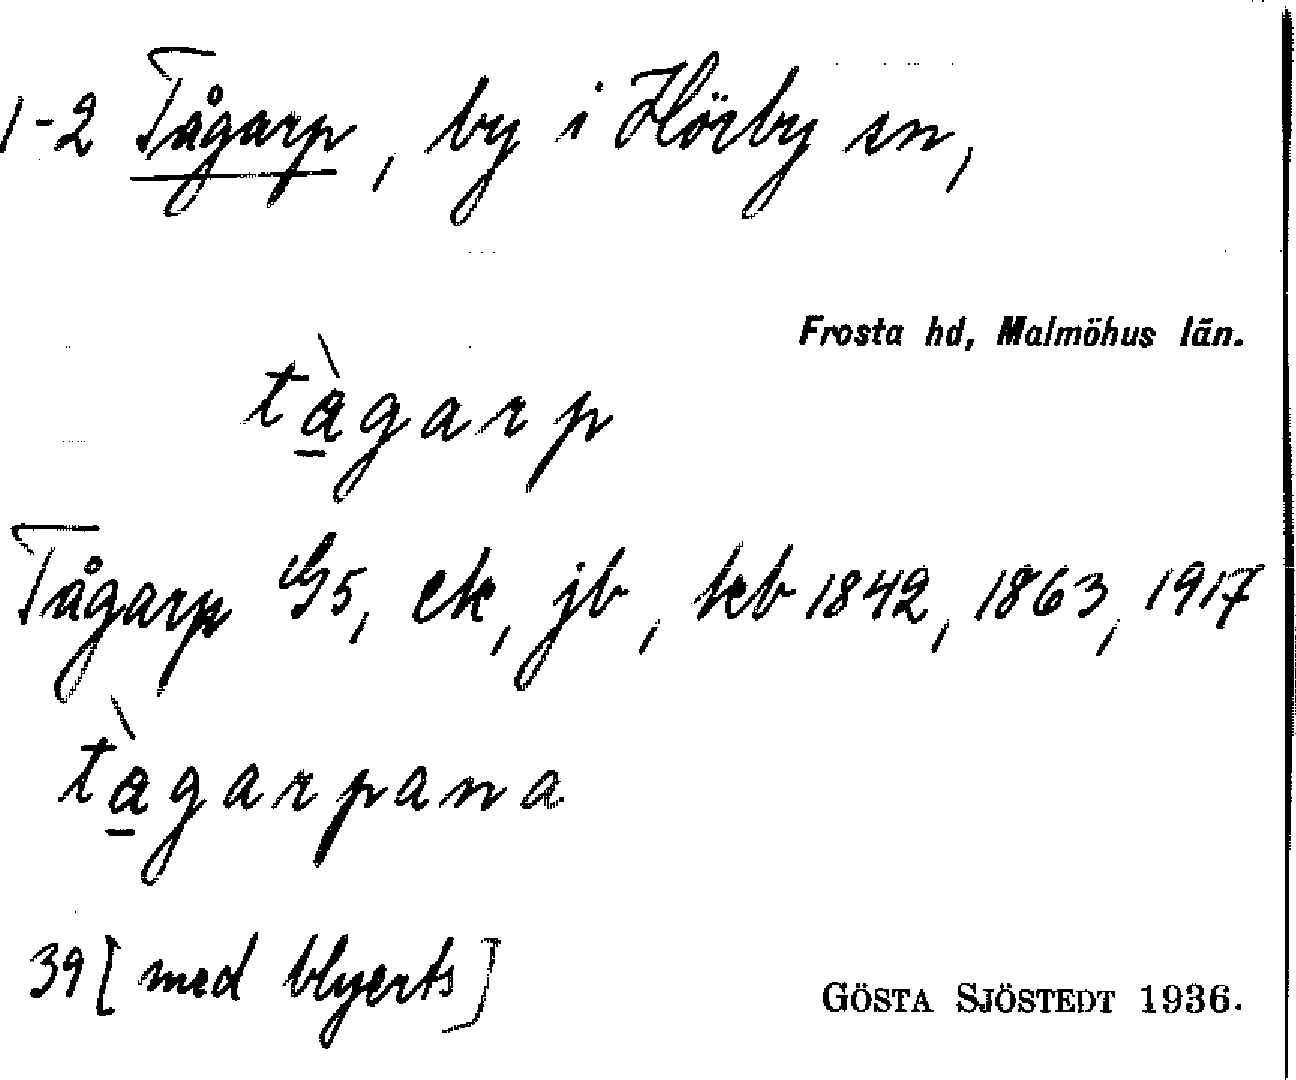 1-2 Tågarp, by i Hörby sn,
Frosta hd, Malmöhus län.
tàgarp
Tågarp G5, ek, jb, kb 1842, 1863, 1917
tàgarpana
39 [med blyerts]
GÖSTA SJÖSTEDT 1936.